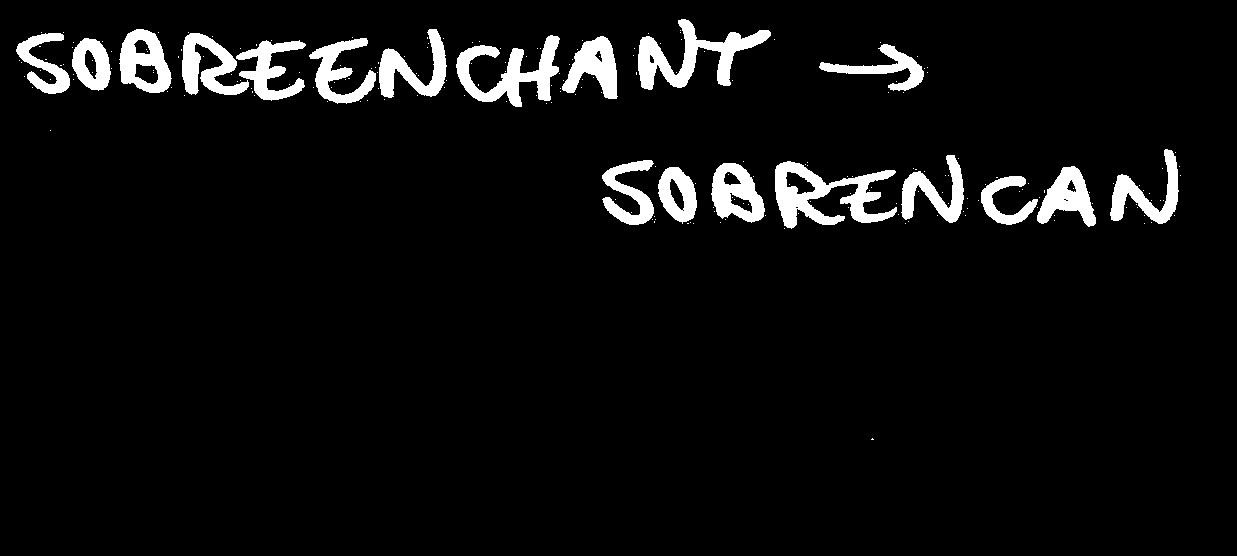 SOBREENCHANT →
SOBRENCAN